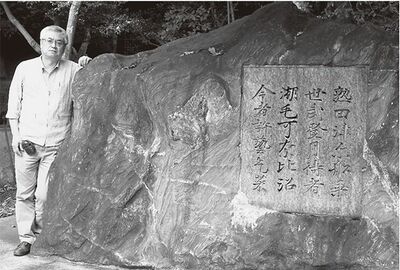 熟田津尓船乗
世武登月待者
潮毛可奈比沼
今者許藝乞菜